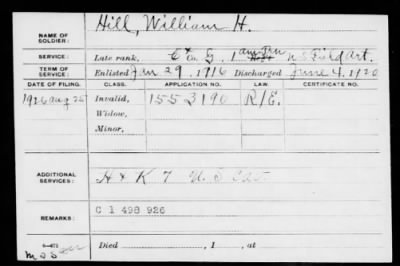 Hill, William H.
NAME OF SOLDIER:
SERVICE: Late rank, Co. G, 1 Am Trn U S Field art.
TERM OF SERVICE: Enlisted Jan 29, 1916 Discharged June 4, 1920
DATE OF FILING. CLASS. APPLICATION NO. LAW. CERTIFICATE NO.
1926 Aug 25 Invalid, 1553190 R/E.
Widow,
Minor,
ADDITIONAL SERVICES: H & K 7 U S Cav.
REMARKS: C 1 498 926
Died , 1 , at